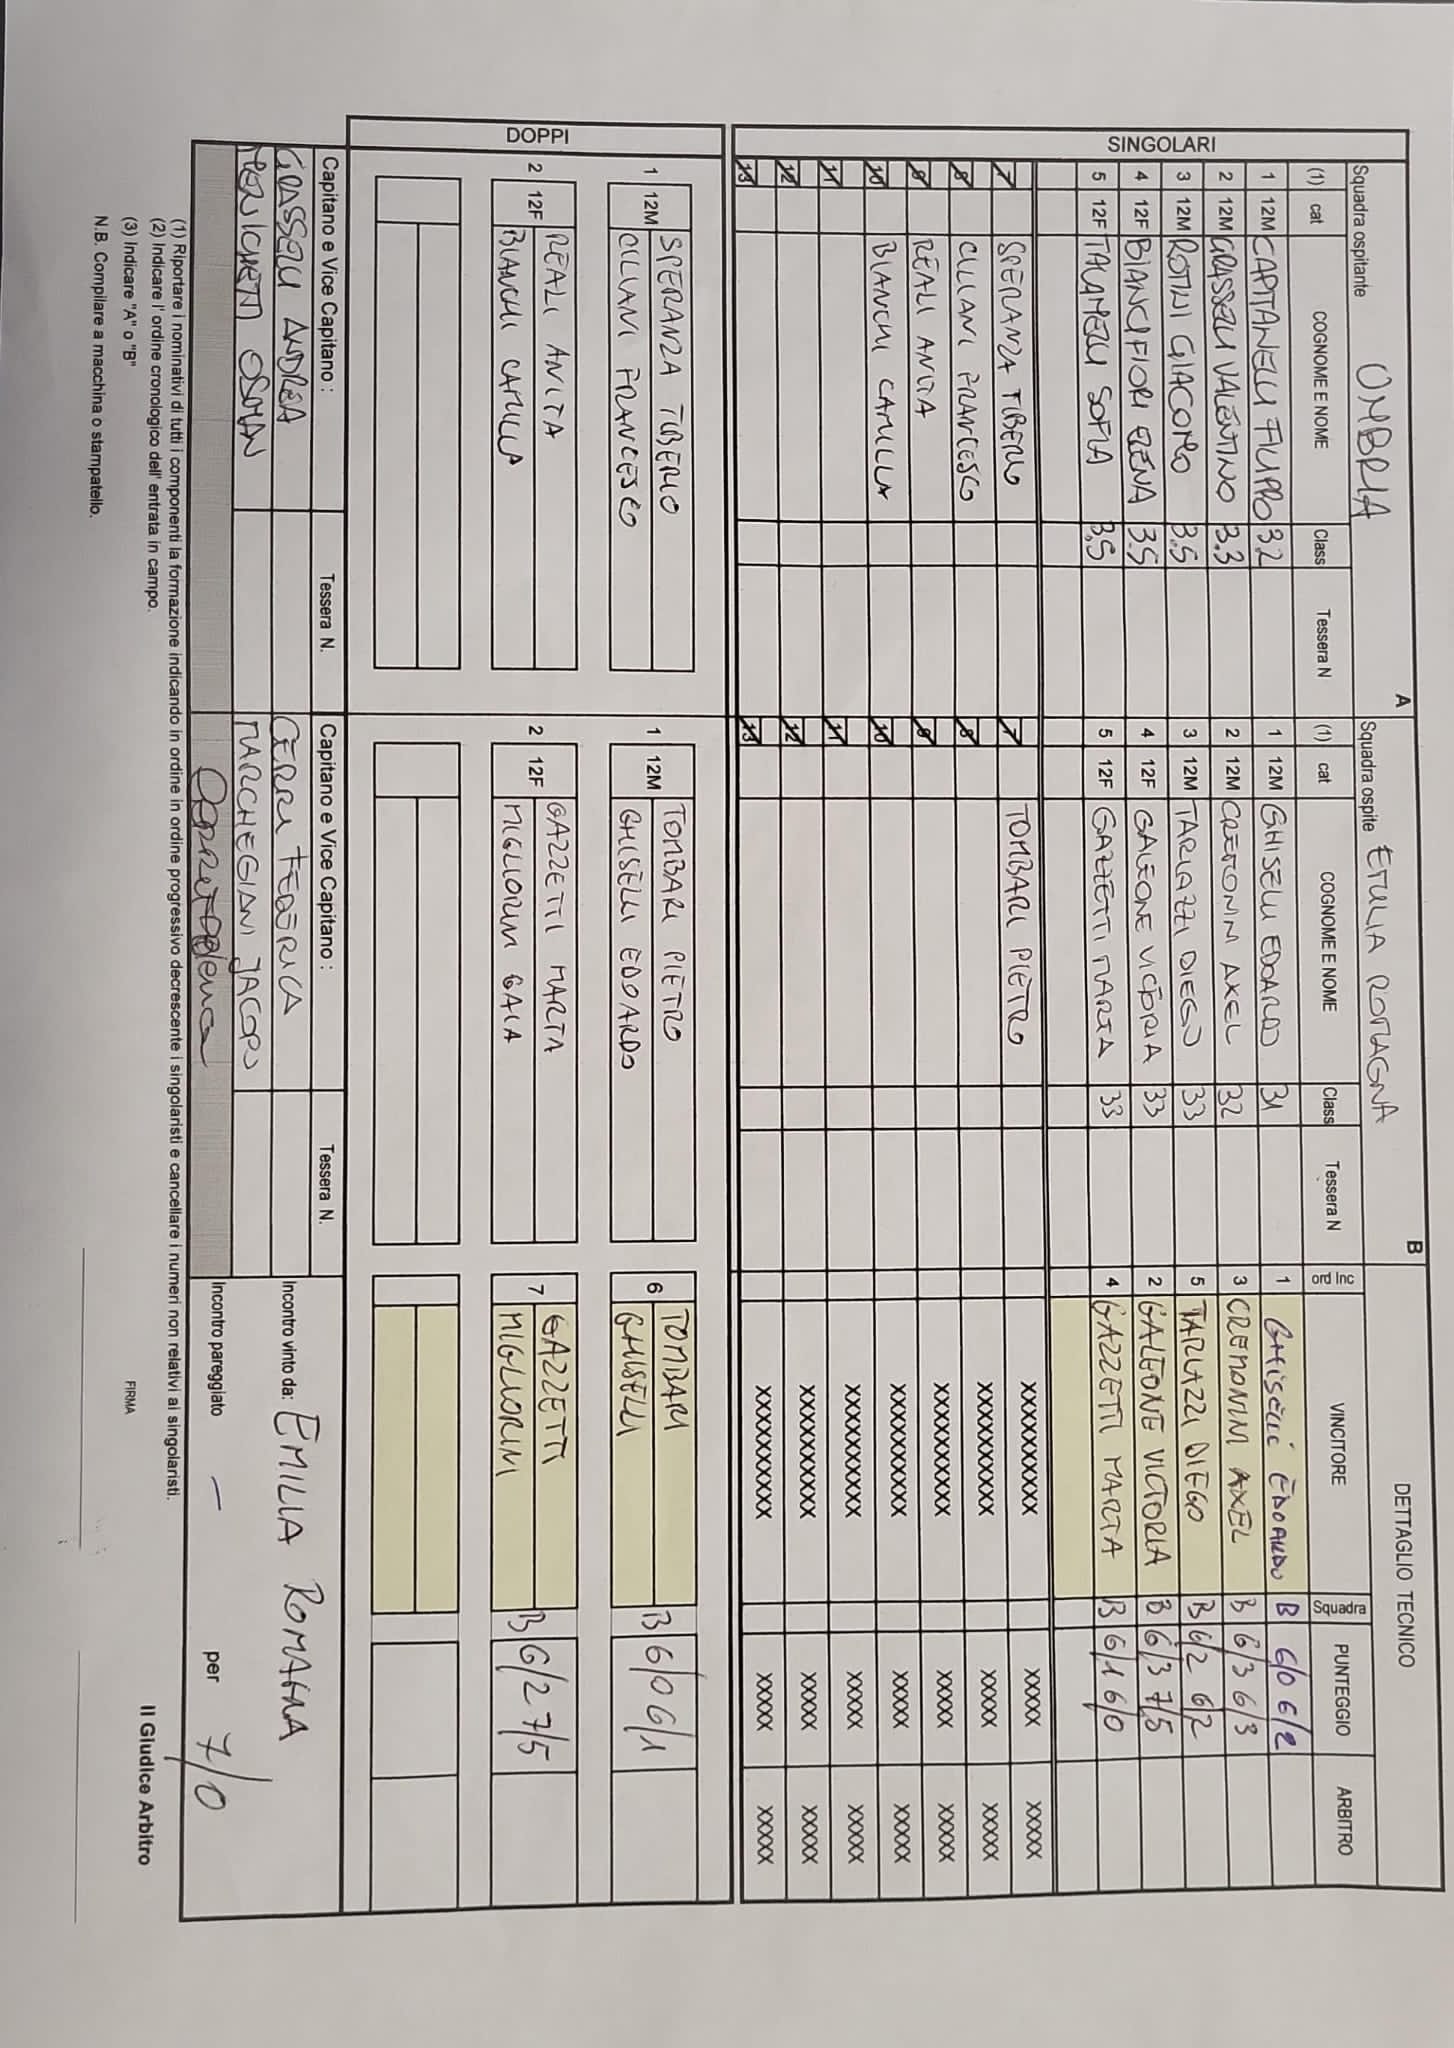 Squadra ospitante UMBRIA A
Squadra ospite EMILIA ROMAGNA B
DETTAGLIO TECNICO
SINGOLARI
(1) cat COGNOME E NOME Class Tessera N (1) cat COGNOME E NOME Class Tessera N ord Inc VINCITORE Squadra PUNTEGGIO ARBITRO
1 12M CAPITANELLI FILIPPO 32 1 12M GHISELLI EDOARDO 31 1 GHISELLI EDOARDO B 6/0 6/2
2 12M GRASSELLI VALENTINO 3.3 2 12M CREMONINI AXEL 32 3 CREMONINI AXEL B 6/3 6/3
3 12M ROTINI GIACOMO 3.5 3 12M TARLAZZI DIEGO 33 5 TARLAZZI DIEGO B 6/2 6/2
4 12F BIANCIFIORI ELENA 3.5 4 12F GALEONE VICTORIA 33 2 GALEONE VICTORIA B 6/3 7/5
5 12F TALAMELLI SOFIA 3.5 5 12F GAZZETTI MARTA 33 4 GAZZETTI MARTA B 6/1 6/0
7 SPERANZA TIBERIO 7 TOMBARI PIETRO XXXXXXXXXX XXXXX XXXXX
8 CILIANI FRANCESCO 8 XXXXXXXXXX XXXXX XXXXX
9 REALI ANITA 9 XXXXXXXXXX XXXXX XXXXX
10 BIANCHI CAMILLA 10 XXXXXXXXXX XXXXX XXXXX
11 11 XXXXXXXXXX XXXXX XXXXX
12 12 XXXXXXXXXX XXXXX XXXXX
13 13 XXXXXXXXXX XXXXX XXXXX
DOPPI
1 12M SPERANZA TIBERIO 1 12M TOMBARI PIETRO 6 TOMBARI B 6/0 6/1
CILIANI FRANCESCO GHISELLI EDOARDO GHISELLI
2 12F REALI ANITA 2 12F GAZZETTI MARTA 7 GAZZETTI B 6/2 7/5
BIANCHI CAMILLA MIGLIORINI GAIA MIGLIORINI
Capitano e Vice Capitano : Tessera N. Capitano e Vice Capitano : Tessera N.
GRASSELLI ANDREA CERRI FEDERICA Incontro vinto da: EMILIA ROMAGNA
OSMAN MARCHEGIANI JACOPO
Incontro pareggiato — per 7/0
(1) Riportare i nominativi di tutti i componenti la formazione indicando in ordine in ordine progressivo decrescente i singolaristi e cancellare i numeri non relativi ai singolaristi.
(2) Indicare l' ordine cronologico dell' entrata in campo.
(3) Indicare "A" o "B"
N.B. Compilare a macchina o stampatello.
FIRMA
Il Giudice Arbitro